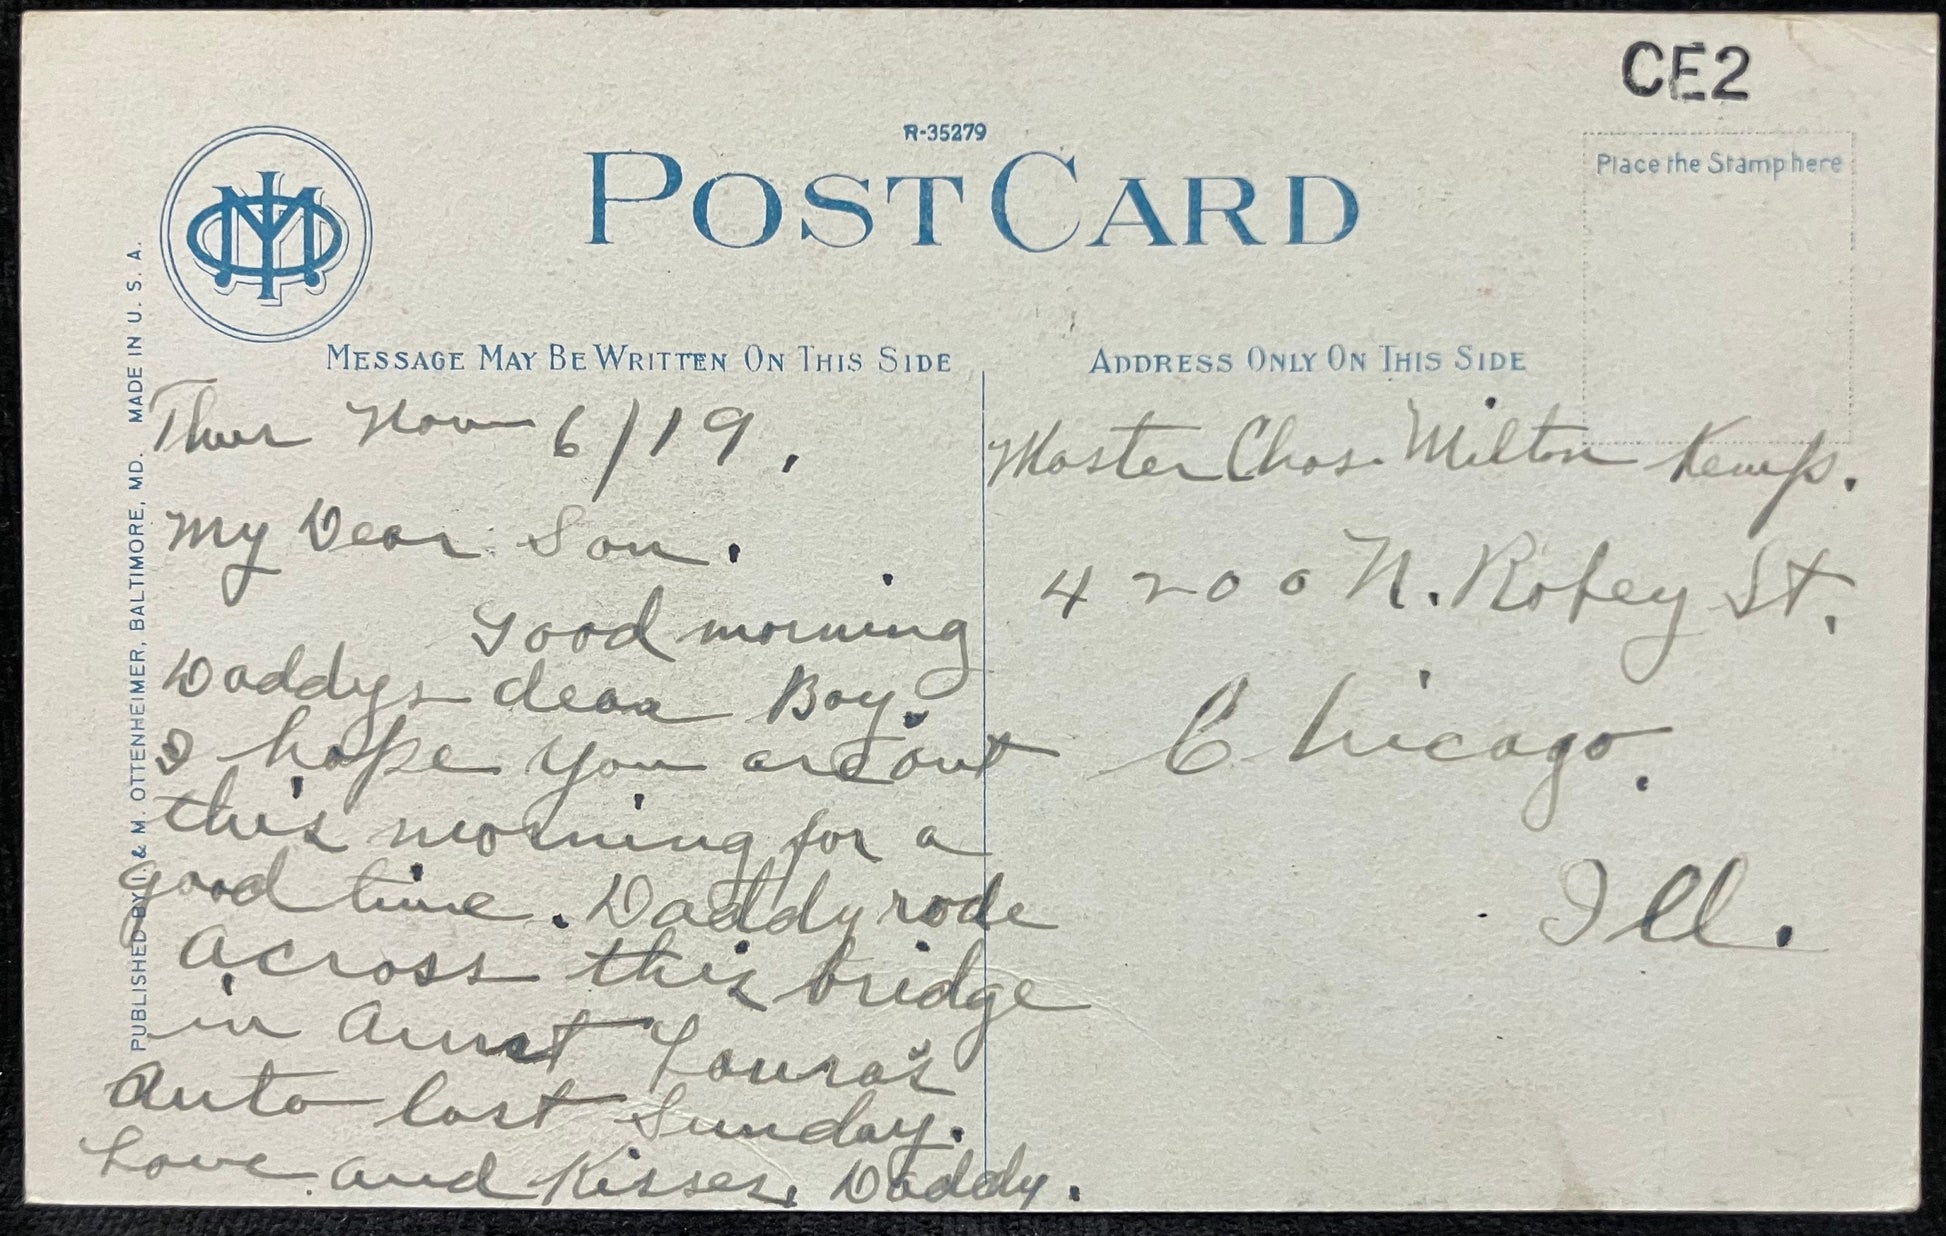 CE2
R-35279
POST CARD
Place the Stamp here
MESSAGE MAY BE WRITTEN ON THIS SIDE
ADDRESS ONLY ON THIS SIDE
PUBLISHED BY I. & M. OTTENHEIMER, BALTIMORE, MD. MADE IN U. S. A.
Thur Nov 6/19.
My Dear Son.
Good morning
Daddys dear Boy.
I hope you are out
this morning for a
good time. Daddy rode
across this bridge
in Aunt Laura's
Auto last Sunday.
Love and Kisses. Daddy.
Master Chas. Milton Kemp.
4200 N. Robey St.
Chicago.
Ill.